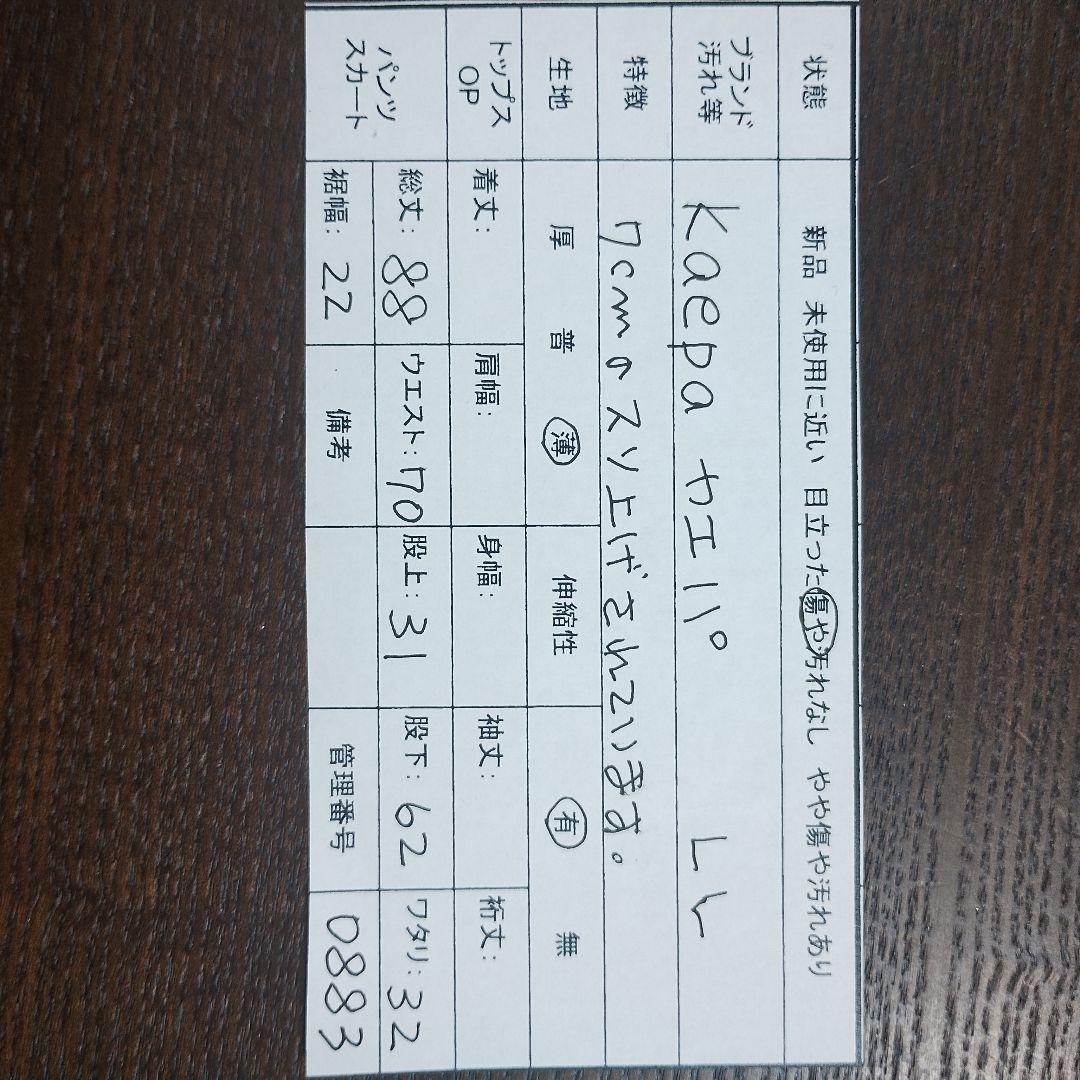 状態 新品 未使用に近い 目立った傷や汚れなし やや傷や汚れあり
ブランド 汚れ等 Kaepa カエパ LL
特徴 7cmのスソ上げされています。
生地 厚 普 薄 伸縮性 有 無
トップス OP 着丈: 肩幅: 身幅: 袖丈: 裄丈:
パンツ スカート 総丈: 88 ウエスト: 70 股上: 31 股下: 62 ワタリ: 32
裾幅: 22 備考 管理番号 0883